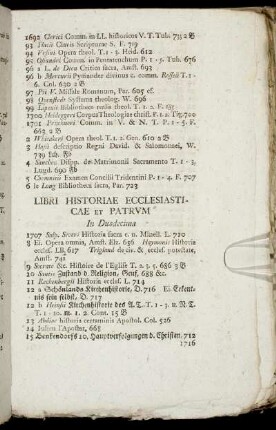 1692 Clerici Comm. in LL. historicos V. T. Tub. 733 2 B
93 Flacii Clavis Scripturae S. F. 719
94 Vossii Opera theol. T. 1 - 5. Heid. 612
95 Osiandri Comm. in Pentateuchum P. 1 - 5. Tub. 676
96 a L. de Dieu Critica sacra, Amst. 693
96 b Mercurii Pymander divinus c. comm. Rosseli T. 1 -
6. Col. 630 2 B
97 Pii V. Missale Romanum, Par. 605 ef.
98 Quenstedt Systema theolog. W. 696
99 Lipenii Bibliotheca realis theol. T. 1. 2. F.
1700 Heideggeri Corpus Theologiae christ. F. 1. 2. Tig. 700
1701 Piscatoris Comm. in V. & N. T. P. 1 - 5. F.
663 2 B
2 Whitakeri Opera theol. T. 1. 2. Gen. 610 2 B
3 Hasii descriptio Regni David. & Salomonei, W.
739 Lib.
4 Sanchez Disp. de Matrimonii Sacramento T. 1 - 3.
Lugd. 690
5 Chemnitii Examen Concilii Tridentini P. 1 - 4. F. 707
6 le Long Bibliotheca sacra, Par. 723
LIBRI HISTORIAE ECCLESIASTI-
CAE ET PATRVM
In Duodecimo
1707 Sulp. Severi Historia sacra c. n. Minell. L. 710
8 Ei. Opera omnia, Amst. Elz. 656 Haymonis Historia
eccles. LB. 617
Amst. 741
9 Socrate &c. Histoire de l'Eglise T. 2. 3. 5. 686 3 B
10 Zustand d. Religion, Genf, 688 &c.
11 Rechenbergii Historia eccles. L. 714
12 a Schönlands Kirchenhistorie, D. 716 Ei Erkent-
nis sein selbst, D. 717
12 b Heinsii Kirchenhistorie des A. T. T. 1 - 3. u. N. T.
T. 1 - 10. m. 1. 2 Cont. 15 B
13 Abdiae historia certaminis Apostol. Col. 526
14 Julien l'Apostat, 688
15 Benkendorfs 10. Hauptverfolgungen d. Christen, 712
1716